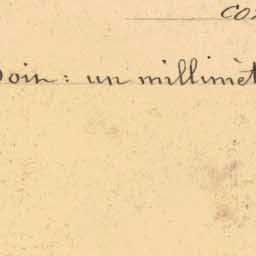 co
oin: un millimèt